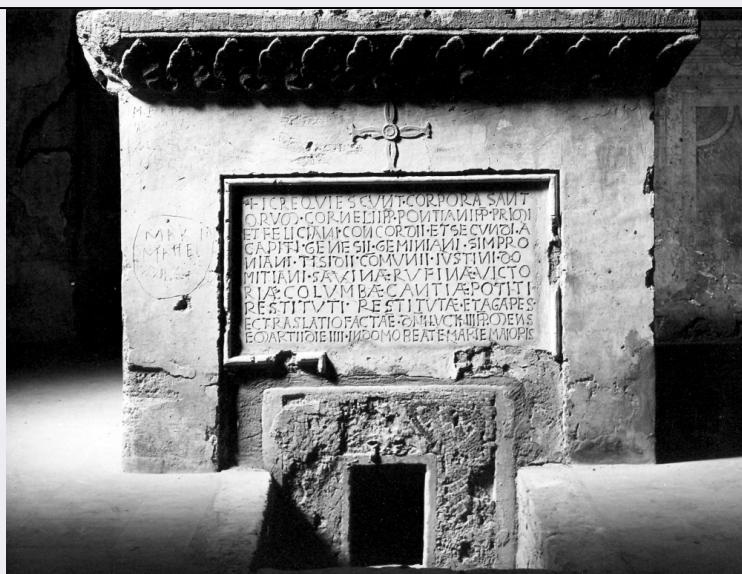 + HIC REQUIESCUNT·CORPORA SANT
ORUM·CORNELII PP·PONTIANI PP·
ET FELICIANI·CONCORDII·ET SECUNDI·A
GAPITI·GENESII·GEMINIANI·SIMPRO
NIANI·TISIDII·COMUNII·IUSTINI·DO
MITIANI·SAVINÆ·RUFINÆ·VICTO
RIÆ·COLUMBÆ CANTIÆ POTITI
RESTITUTI·RESTITUTÆ·ET AGAPES·
EC TRASLATIO FACTA E· LUCII·III PP·
DIE IIII·IN DOMO BEATE MARIE MAIORIS